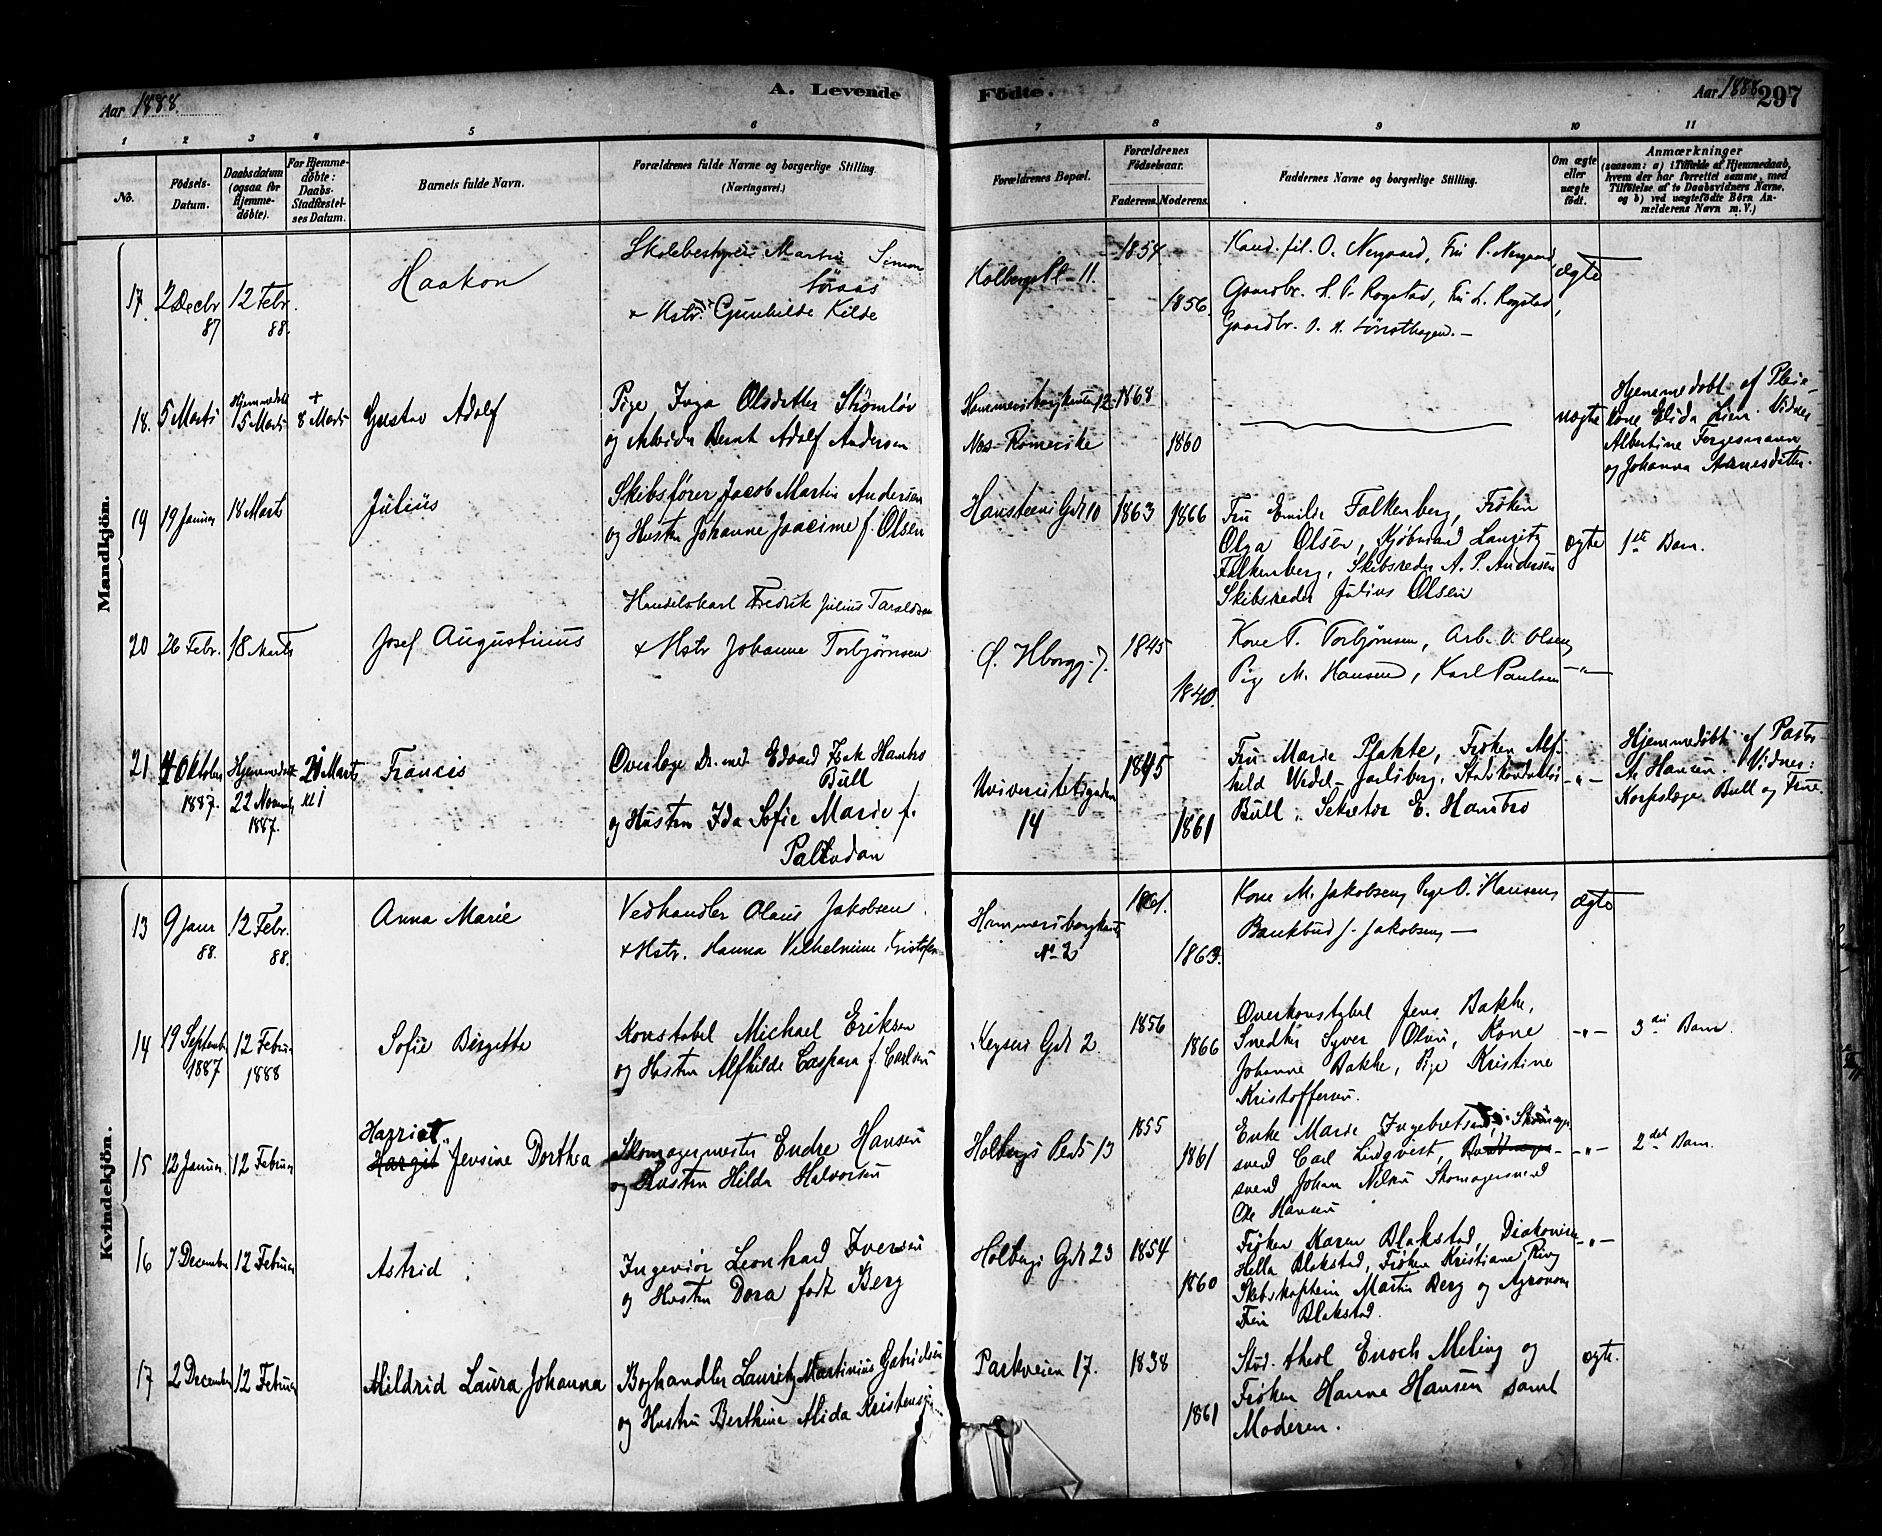 Aar 1888.
A. Levende
Födte.
Aar 1888
297
1 2 3 4 5 6 7 8 9 10 11
No.
Födsels-
Datum.
Daabsdatum
(ogsaa for
Hjemme-
döbte).
For Hjemme-
döbte:
Daabs-
Stadfæstel-
ses Datum.
Barnets fulde Navn.
Forældrenes fulde Navne og borgerlige Stilling.
(Næringsvei.)
Forældrenes Bopæl.
Forældrenes
Födselsaar.
Faderens. Moderens.
Faddernes Navne og borgerlige Stilling.
Om ægte
eller
uægte
födt.
Anmærkninger
(saasom: a) i Tilfælde af Hjemmedaab,
hvem der har forrettet samme, med
Tilföielse af to Daabsvidners Navne,
og b) ved uægtefödte Börn An-
melderens Navn m. V.)
Mandkjön.
17. 2 Decbr 87
12 Febr. 88.
Haakon
Skolebestyrer Martin Simon
Søraas
+ Hstr. Gunhilde Kilde
Holbergs Pl. 11.
1854
1856.
Kand. fil. O. Nergaard, Fru P. Nergaard,
Gaardbr. H. P. Rogstad, Fru L. Rogstad,
Gaardbr. O. H.
ægte
18. 5 Marts
Hjemmedøbt
15 Marts
8 Marts
Gustav Adolf
Pige Inga Olsdatter Strømløv
og Arbeider Bernt Adolf Andersen
Hammersborgkaten 12
Næs Romerike
1868
1860
uægte
Hjemmedøbt af Pleie-
kone Elida Lien. Vidner
Albertine
og Johanna Arnesdatter.
19 19 Januar
18 Marts
Julius
Skibsfører Jacob Martin Andersen
og Hustru Johanne Joacime f. Olsen
Hansteens Gd 10
1863
1866
Fru Emilie Falkenberg, Frøken
Olga Olsen, Kjøbmand Lauritz
Falkenberg, Skibsreder A. P. Andersen
Skibsreder Julius Olsen
ægte
1ste Barn.
20 26 Febr.
18 Marts
Josef Augustinus
Handelskarl Fredrik Julius Taraldsen
+ Hstr Johanne Torbjørnsen
Ø. Hborgg. 7.
1845
1840.
Kone T. Torbjørnsen, Arb. O. Olsen
Pige M. Hansen, Karl Paulsen
—„—
21 4 Oktober
1887.
Hjemmedøbt
22 Novemb,
1887.
21 Marts
Francis
Overlæge Dr. med Edvard Isak Hambro
Bull
og Hustru Ida Sofie Marie f.
Paludan
Universitetsgaden
14
1845
1861
Fru Marie Plahte, Frøken Alf-
hild Wedel-Jarlsberg, Stadskonduktør
Bull, Sekretær E. Hambro
—„—
Hjemmedøbt af Pastor
Ar Hansen. Vidner:
Korpslæge Bull og Frue.
Kvindekjön.
13 9 Januar
88.
12 Febr.
88.
Anna Marie
Vedhandler Olaus Jakobsen
+ Hstr. Hanna Vilhelmine Kristofersen
Hammersborgkaten
No 2
1861.
1863.
Kone M. Jakobsen, Pige O. Hansen,
Bankbud J. Jakobsen —
ægte
14 19 Septemb.
1887
12 Februar
1888
Sofie Birgitte
Konstabel Michael Eriksen
og Hustru Alfhilde Caspara f. Carlsen
Keysers Gd 2.
1856
1866
Overkonstabel Jens Bakke,
Snedker Syver Olsen, Kone
Johanne Bakke, Pige Kristine
Kristoffersen.
—„—
3die Barn.
15 12 Januar
12 Februar
Harriet
Hargit Jensine Dorthea
Skomagermester Endre Hansen
og Hustru Hilda Halvorsen
Holbergs Plads 13
1855
1861
Enke Marie Ingebretsen, Skomager
svend Carl Lindqvist,
svend Johan Nilsen Skomagersvend
Ole Hansen
—„—
2det Barn.
16 7 December
12 Februar
Astrid
Ingeniør Leonhard Iversen
og Hustru Dora født Berg
Holbergs Gd 23
1854
1860
Frøken Karen Blakstad, Diakonisse
Hella Blakstad, Frøken Kristiane Ring
Skibskaptein Martin Berg og Agronom
Finn Blakstad.
—„—
17 2 December
12 Februar
Mildrid Laura Johanna
Boghandler Lauritz Martinius Gabrielsen
og Hustru Berthine Alida Kristensen
Parkveien 17.
1838
1861
Stud. theol Enoch Meling og
Frøken Hanna Hansen samt
Moderen.
ægte.